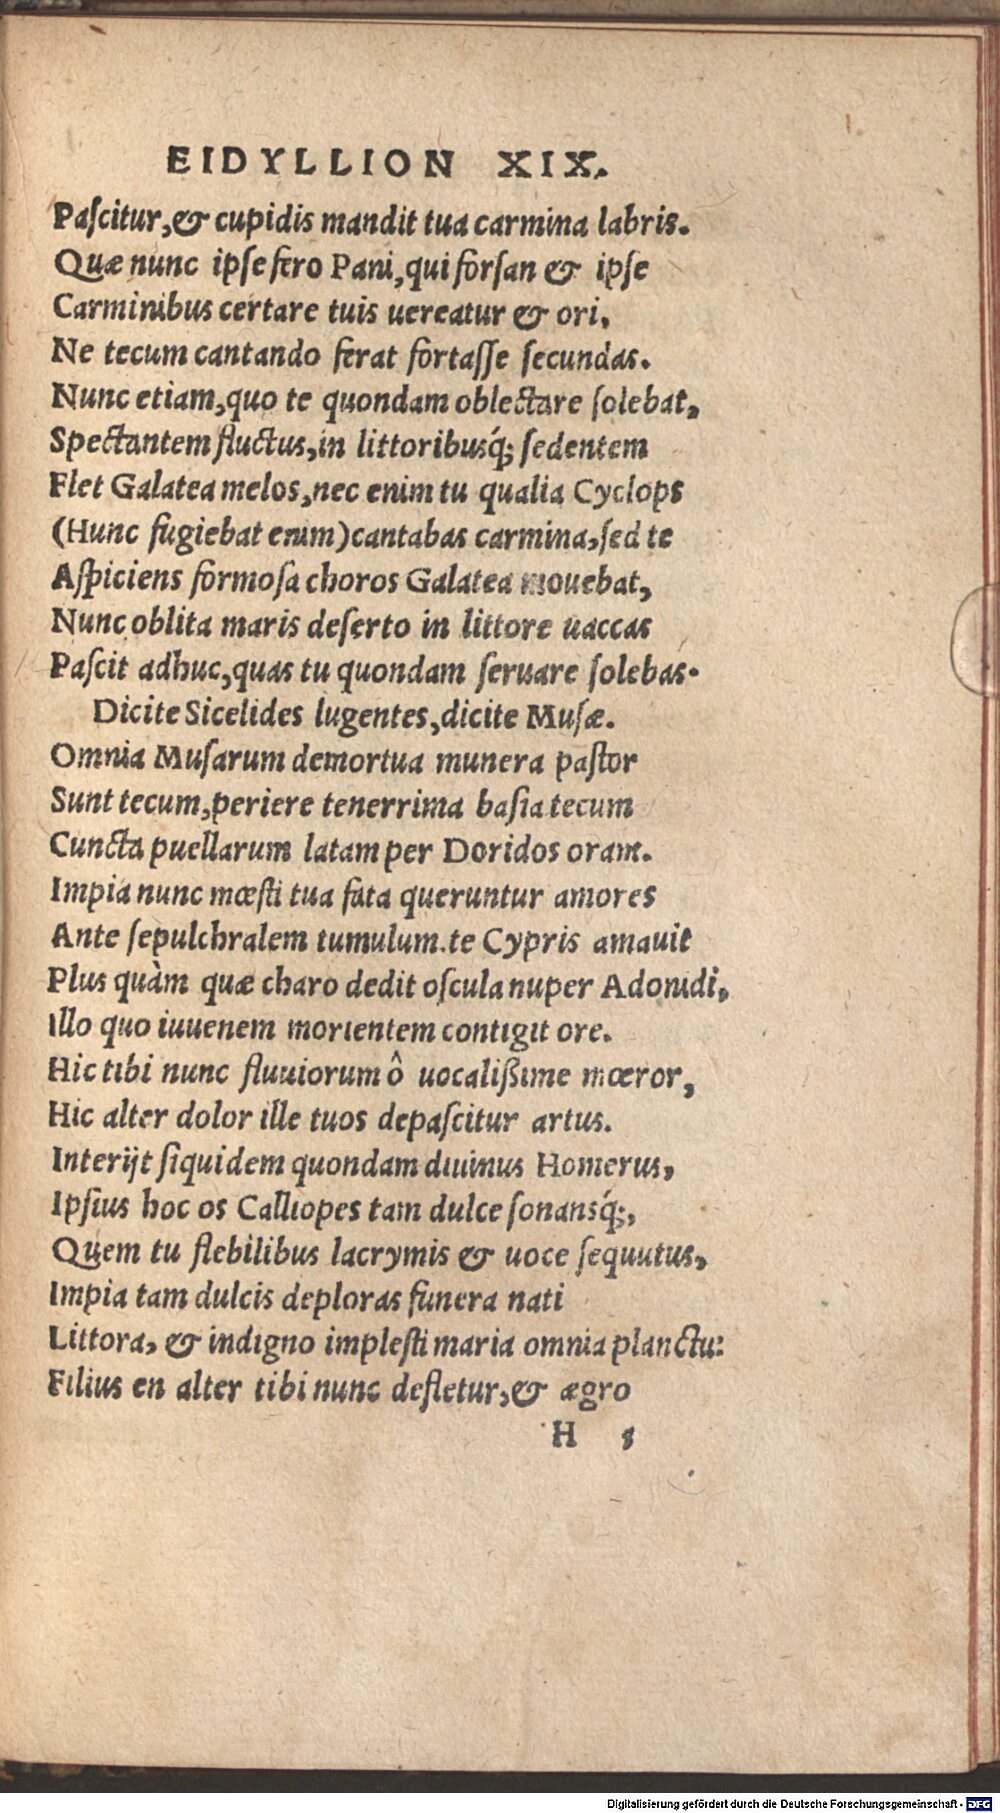 EIDYLLION XIX.
Paſcitur,& cupidis mandit tua carmina labris.
Quæ nunc ipſe fero Pani,qui forſan & ipſe
Carminibus certare tuis uereatur & ori,
Ne tecum cantando ferat fortaſſe ſecundas.
Nunc etiam,quo te quondam oblectare ſolebat,
Spectantem fluctus,in littoribusq́; ſedentem
Flet Galatea melos,nec enim tu qualia Cyclops
(Hunc fugiebat enim)cantabas carmina,ſed te
Aſpiciens formoſa choros Galatea mouebat,
Nunc oblita maris deſerto in littore uaccas
Paſcit adhuc,quas tu quondam ſeruare ſolebas.
Dicite Sicelides lugentes,dicite Muſæ.
Omnia Muſarum demortua munera paſtor
Sunt tecum,periere tenerrima baſia tecum
Cuncta puellarum latam per Doridos oram.
Impia nunc mœſti tua fata queruntur amores
Ante ſepulchralem tumulum.te Cypris amauit
Plus quàm quæ charo dedit oſcula nuper Adonidi,
Illo quo iuuenem morientem contigit ore.
Hic tibi nunc fluuiorum ô uocalißime mœror,
Hic alter dolor ille tuos depaſcitur artus.
Interijt ſiquidem quondam diuinus Homerus,
Ipſius hoc os Calliopes tam dulce ſonansq́;,
Quem tu flebilibus lacrymis & uoce ſequutus,
Impia tam dulcis deploras funera nati
Littora, & indigno impleſti maria omnia planctu:
Filius en alter tibi nunc defletur,& ægro
H 5
Digitalisierung gefördert durch die Deutsche Forschungsgemeinschaft - DFG